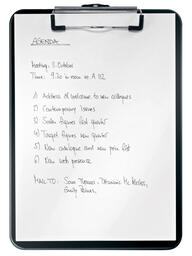 AGENDA
Meeting: 8 October
Time: 9.30 in room no A 112
1) Address of welcome to new colleagues
2) Contemporary Issues
3) Sales figures last quarter
4) Target figures new quarter
5) New catalogue and new price list
6) New web presence
MAIL TO: Sam Thomas, Dominic Mc
Emily